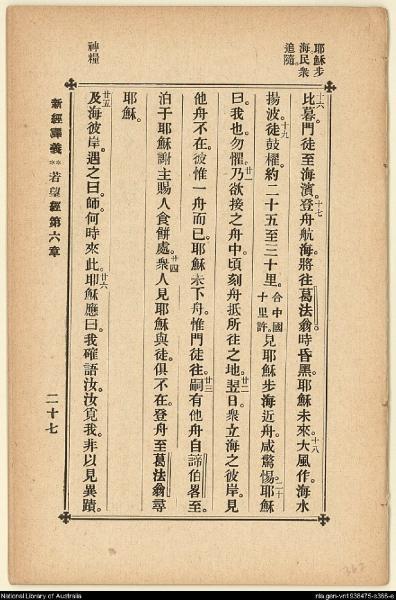 耶穌步
海民衆
追隨
神糧
十六比暮。門徒至海濱。十七登舟航海。將往葛法翁。時昏黑。耶穌未來。十八大風作。海水
揚波。十九徒鼓櫂。約二十五至三十里。合中國十里許。見耶穌步海近舟。咸驚惕。二十耶穌
曰。我也。勿懼。廿一乃欲接之舟中。頃刻舟抵所往之地。廿二翌日。衆立海之彼岸。見
他舟不在。彼惟一舟而已。耶穌未下舟。惟門徒往。廿三嗣有他舟自諦伯畧至。
泊于耶穌謝主賜人食餅處。廿四衆人見耶穌與徒。俱不在。登舟至葛法翁尋
耶穌。
廿五及海彼岸。遇之曰。師。何時來此。廿六耶穌應曰。我確語汝。汝覓我。非以見異蹟。
新經譯義 若望經第六章
二十七
National Library of Australia
nla.gen-vn1938475-s366-e